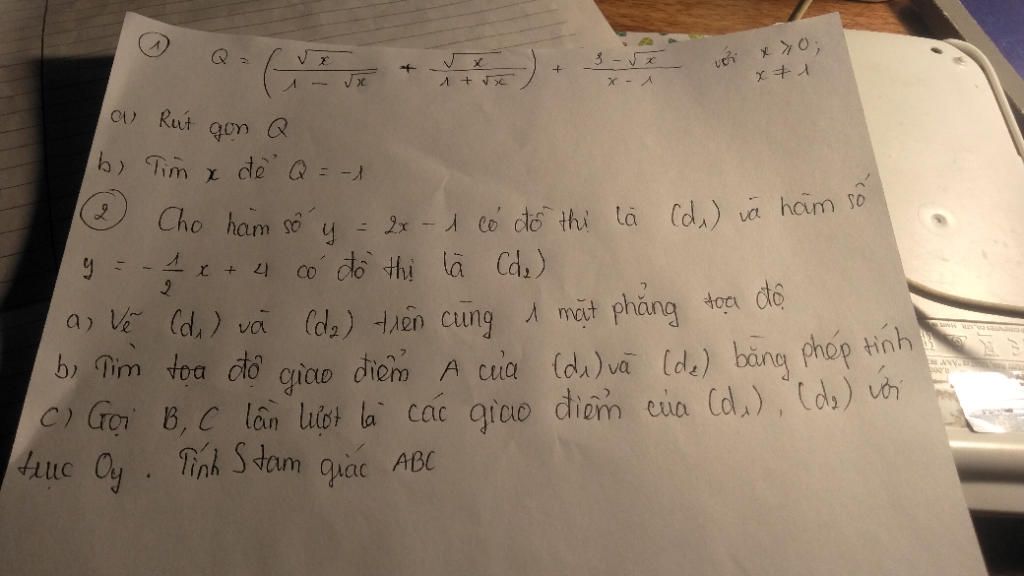 ① Q = (√x / (1 - √x) + √x / (1 + √x)) + (3 - √x) / (x - 1) với x ≥ 0; x ≠ 1
a) Rút gọn Q
b) Tìm x để Q = -1
② Cho hàm số y = 2x - 1 có đồ thị là (d₁) và hàm số
y = -1/2 x + 4 có đồ thị là (d₂)
a) Vẽ (d₁) và (d₂) trên cùng 1 mặt phẳng tọa độ
b) Tìm tọa độ giao điểm A của (d₁) và (d₂) bằng phép tính
c) Gọi B, C lần lượt là các giao điểm của (d₁), (d₂) với
trục Oy. Tính S tam giác ABC